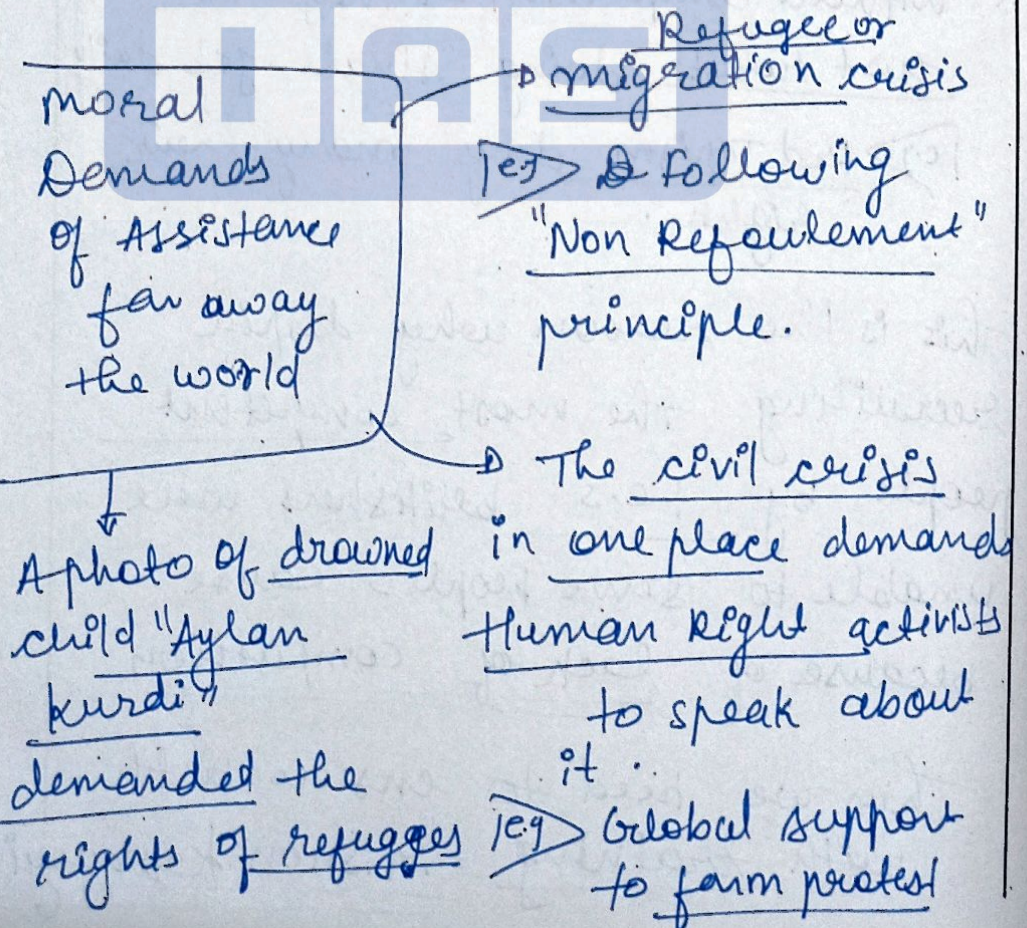 IAS
moral
Demands
of Assistance
far away
the world
Refugee or
migration crisis
e.g Following
"Non Refoulement"
principle.
The civil crisis
in one place demands
Human Right activists
to speak about
it.
e.g Global support
to farm protest
A photo of drowned
child "Aylan
kurdi"
demanded the
rights of refugges